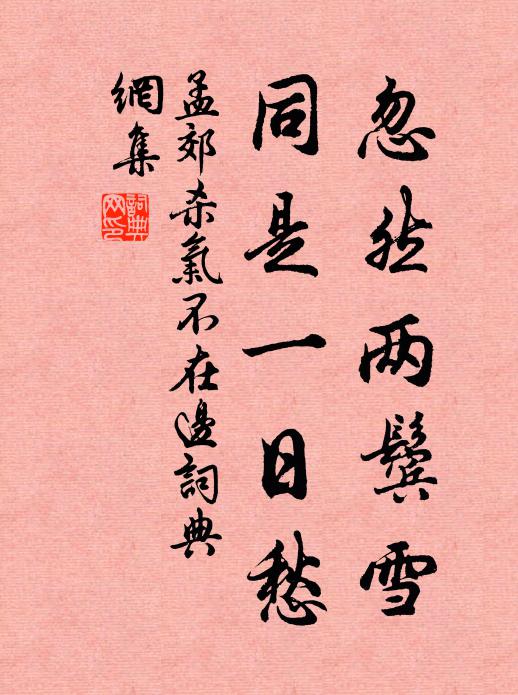 忽然两鬓雪
同是一日愁
孟郊杀氣不在邊詞典
網集
詞典網印